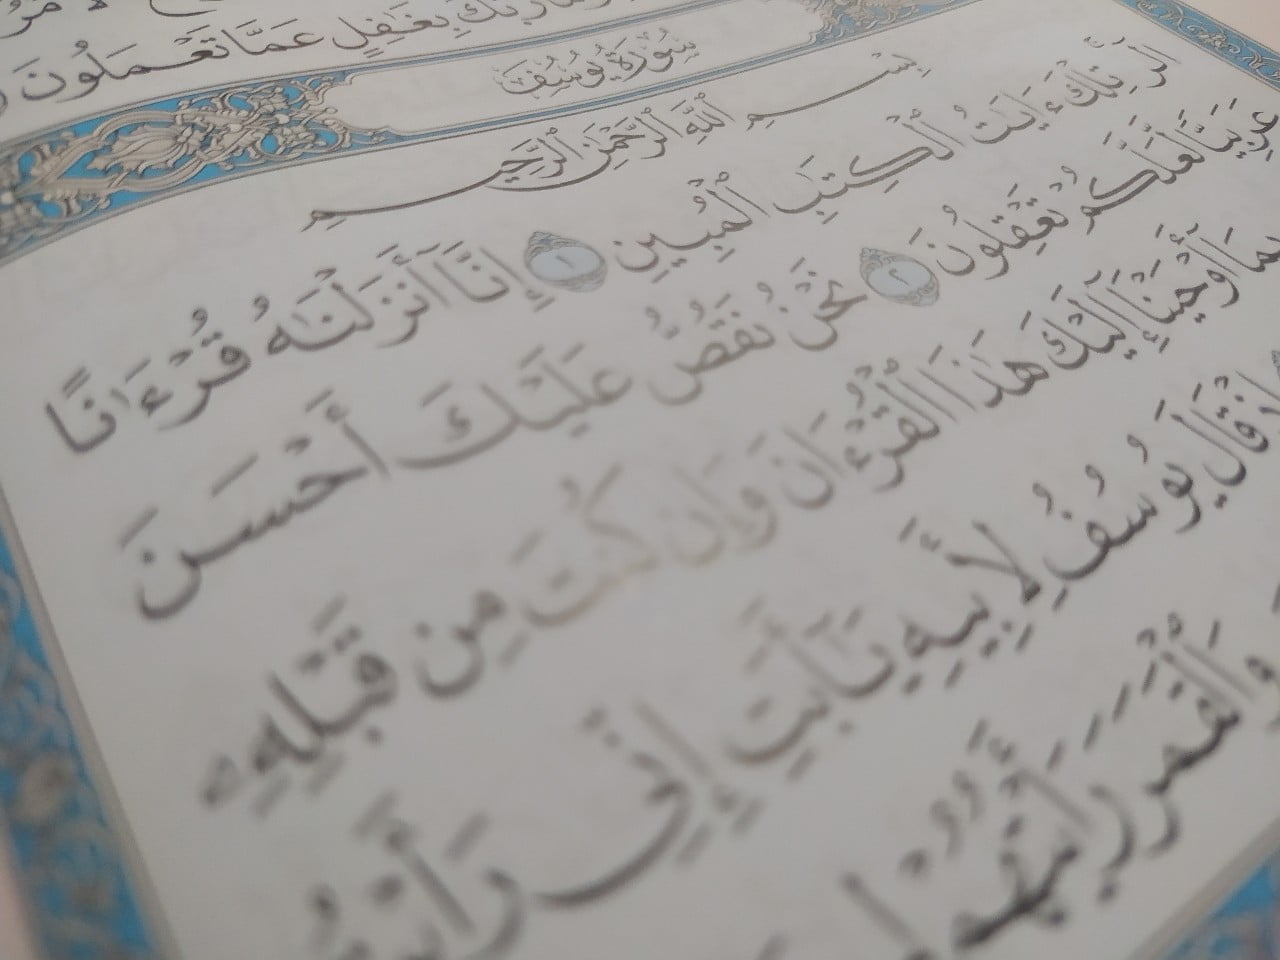 رَبُّكَ بِغَٰفِلٍ عَمَّا تَعۡمَلُونَ
سُورَةُ يُوسُفَ
بِسۡمِ ٱللَّهِ ٱلرَّحۡمَٰنِ ٱلرَّحِيمِ
الٓرۚ تِلۡكَ ءَايَٰتُ ٱلۡكِتَٰبِ ٱلۡمُبِينِ ١ إِنَّآ أَنزَلۡنَٰهُ قُرۡءَٰنًا
عَرَبِيّٗا لَّعَلَّكُمۡ تَعۡقِلُونَ ٢ نَحۡنُ نَقُصُّ عَلَيۡكَ أَحۡسَنَ
بِمَآ أَوۡحَيۡنَآ إِلَيۡكَ هَٰذَا ٱلۡقُرۡءَانَ وَإِن كُنتَ مِن قَبۡلِهِۦ
إِذۡ قَالَ يُوسُفُ لِأَبِيهِ يَٰٓأَبَتِ إِنِّي رَأَيۡتُ
وَٱلۡقَمَرَ رَأَيۡتُهُمۡ لِي